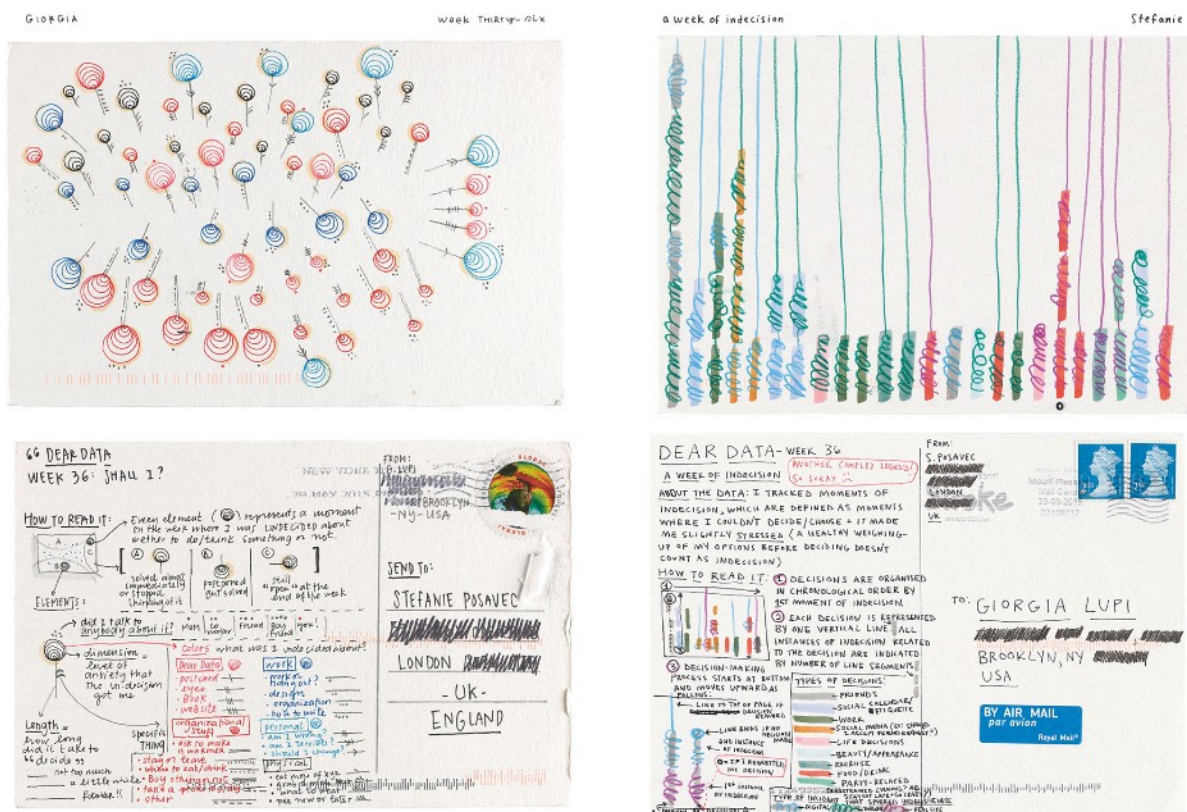 GIORGIA
WEEK THIRTY-SIX
a week of indecision
Stefanie
DEAR DATA
WEEK 36: SHALL I?
HOW TO READ IT:
Every element ( ) represents a moment
in the week where I was UNDECIDED about
wether to do/think something or not.
A
B
C
solved almost
immediately
or stopped
thinking of it
postponed
but solved
still
"open" at the
end of the week
ELEMENTS:
did I talk to
anybody about it?
mum
co worker
friend
boy friend
you!
colors what was I undecided about?
dimension =
level of
anxiety that
the indecision
got me
Length =
how long
did it take to
"decide"
not too much
a little while
forever!!
specific
THING
Dear Data
postcard
eyeo
Book
website
organizational
stuff
ask to make
it warmer
stay or leave
when to eat/drink
Buy something or not
other
work
design
organization
how to write
personal
am I wrong?
should I change?
physical
what to wear
pee now or later
FROM:
G. LUPI
BROOKLYN
-NY- USA
GLOBAL
FOREVER
SEND TO:
STEFANIE POSAVEC
LONDON
- UK -
ENGLAND
DEAR DATA - WEEK 36
A WEEK OF INDECISION
ANOTHER COMPLEX LEGEND!
SO SORRY
ABOUT THE DATA: I TRACKED MOMENTS OF
INDECISION, WHICH ARE DEFINED AS MOMENTS
WHERE I COULDN'T DECIDE/CHOOSE + IT MADE
ME SLIGHTLY STRESSED (A HEALTHY WEIGHING-
UP OF MY OPTIONS BEFORE DECIDING DOESN'T
COUNT AS INDECISION)
HOW TO READ IT:
1 DECISIONS ARE ORGANISED
IN CHRONOLOGICAL ORDER BY
1ST MOMENT OF INDECISION.
2 EACH DECISION IS REPRESENTED
BY ONE VERTICAL LINE. ALL
INSTANCES OF INDECISION RELATED
TO THE DECISION ARE INDICATED
BY NUMBER OF LINE SEGMENTS
3 DECISION-MAKING
PROCESS STARTS AT BOTTOM
AND MOVES UPWARD AS
FOLLOWS:
LINE TO TOP OF PAGE IF
DECISION
LINE ENDS IF NO
DECISION MADE
2ND INSTANCE
OF INDECISION
O = IF I REGRETTED
MY DECISION
1ST INSTANCE
OF INDECISION
TYPES OF DECISIONS:
FRIENDS
SOCIAL CALENDAR/
ETIQUETTE
WORK
SOCIAL MEDIA
LIFE DECISIONS
BEAUTY/APPEARANCE
EXERCISE
FOOD/DRINK
PARTY-RELATED
FROM:
S. POSAVEC
LONDON
UK
TO: GIORGIA LUPI
BROOKLYN, NY
USA
BY AIR MAIL
par avion
Royal Mail